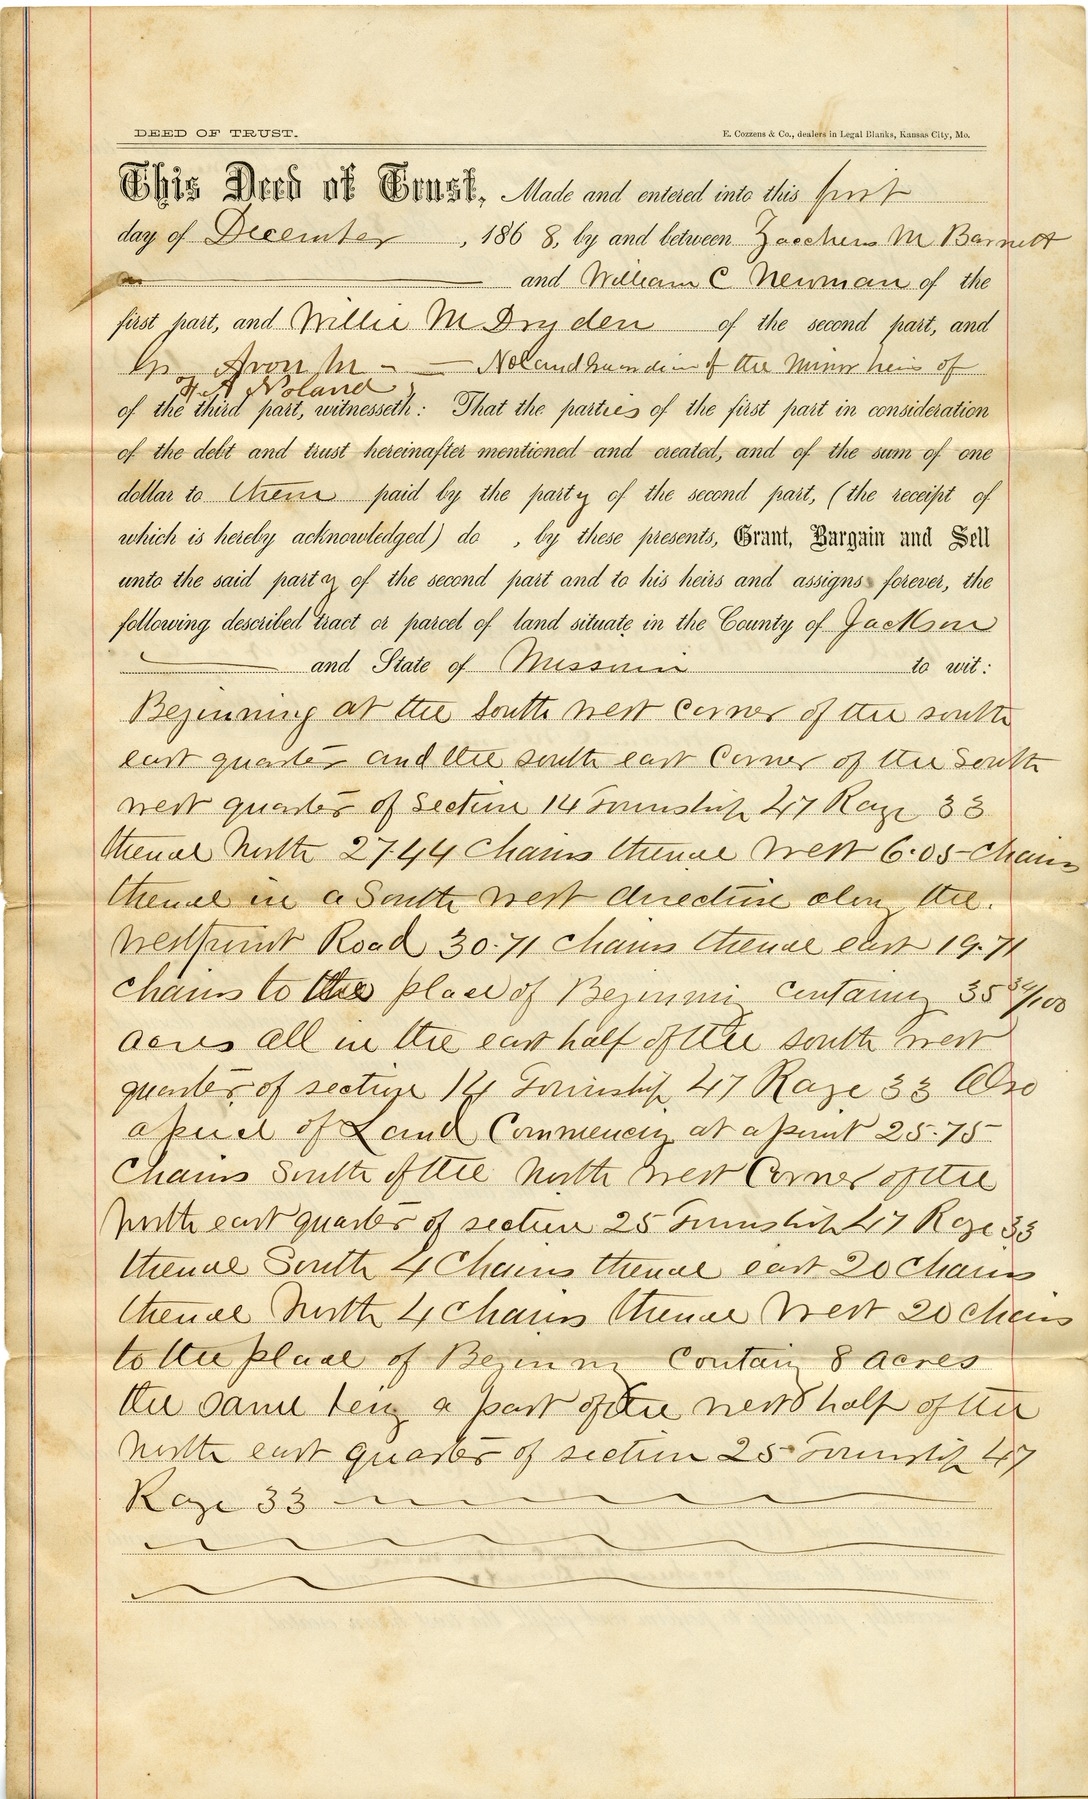 DEED OF TRUST.
E. Cozzens & Co., dealers in Legal Blanks, Kansas City, Mo.
This Deed of Trust, Made and entered into this first
day of December , 186 8, by and between Zaccheus M Barnett
and William C Newman of the
first part, and Willie M Dryden of the second part, and
Noland Guardian of the Minor heirs of
of the third part, witnesseth: That the parties of the first part in consideration
of the debt and trust hereinafter mentioned and created, and of the sum of one
dollar to them paid by the party of the second part, (the receipt of
which is hereby acknowledged) do , by these presents, Grant, Bargain and Sell
unto the said party of the second part and to his heirs and assigns forever, the
following described tract or parcel of land situate in the County of Jackson
and State of Missouri to wit:
Beginning at the South west corner of the south
east quarter and the south east Corner of the South
west quarter of Section 14 Township 47 Rage 33
thence North 27.44 Chains thence West 6.05 Chains
thence in a South west direction along the
westpoint Road 30.71 chains thence east 19.71
chains to the place of Beginning containing 35
acres all in the east half of the south west
quarter of section 14 Township 47 Rage 33 Also
a piece of Land Commencing at a point 25.75
Chains South of the North West Corner of the
North east quarter of section 25 Township 47 Rage 33
thence South 4 Chains thence east 20 Chains
thence North 4 Chains thence West 20 chains
to the place of Beginning Containing 8 acres
the same being a part of the west half of the
North east quarter of section 25 Township 47
Rage 33